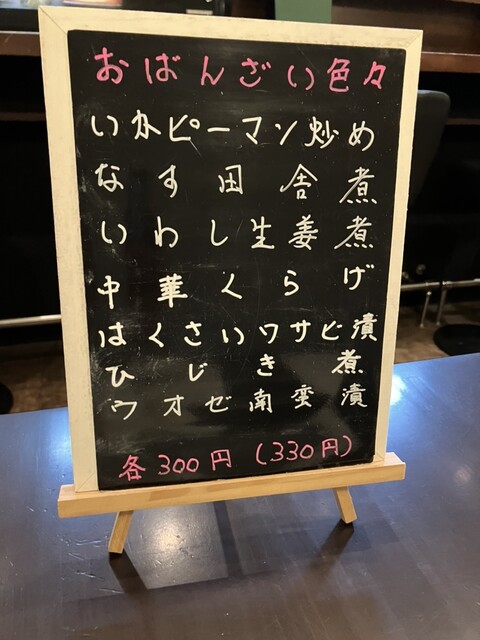 おばんざい色々
いかピーマン炒め
なす田舎煮
いわし生姜煮
中華くらげ
はくさいワサビ漬
ひじき煮
ウオゼ南蛮漬
各300円(330円)